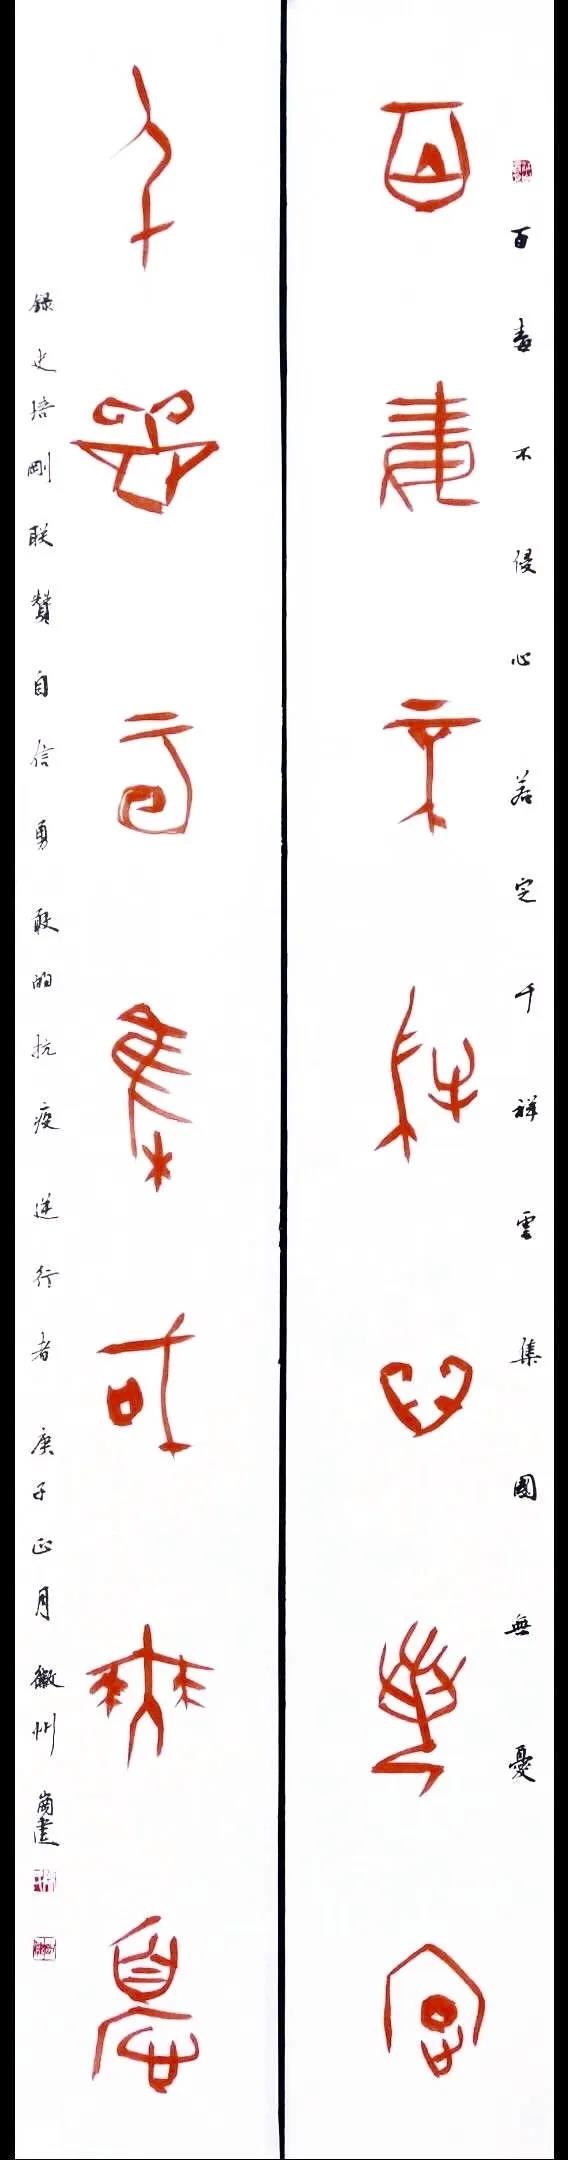 百毒不侵心若定千祥雲集國無憂
百毒不侵心若定
千祥雲集國無憂
録史培剛联贊自信勇敢的抗疫逆行者 庚子正月 徽州